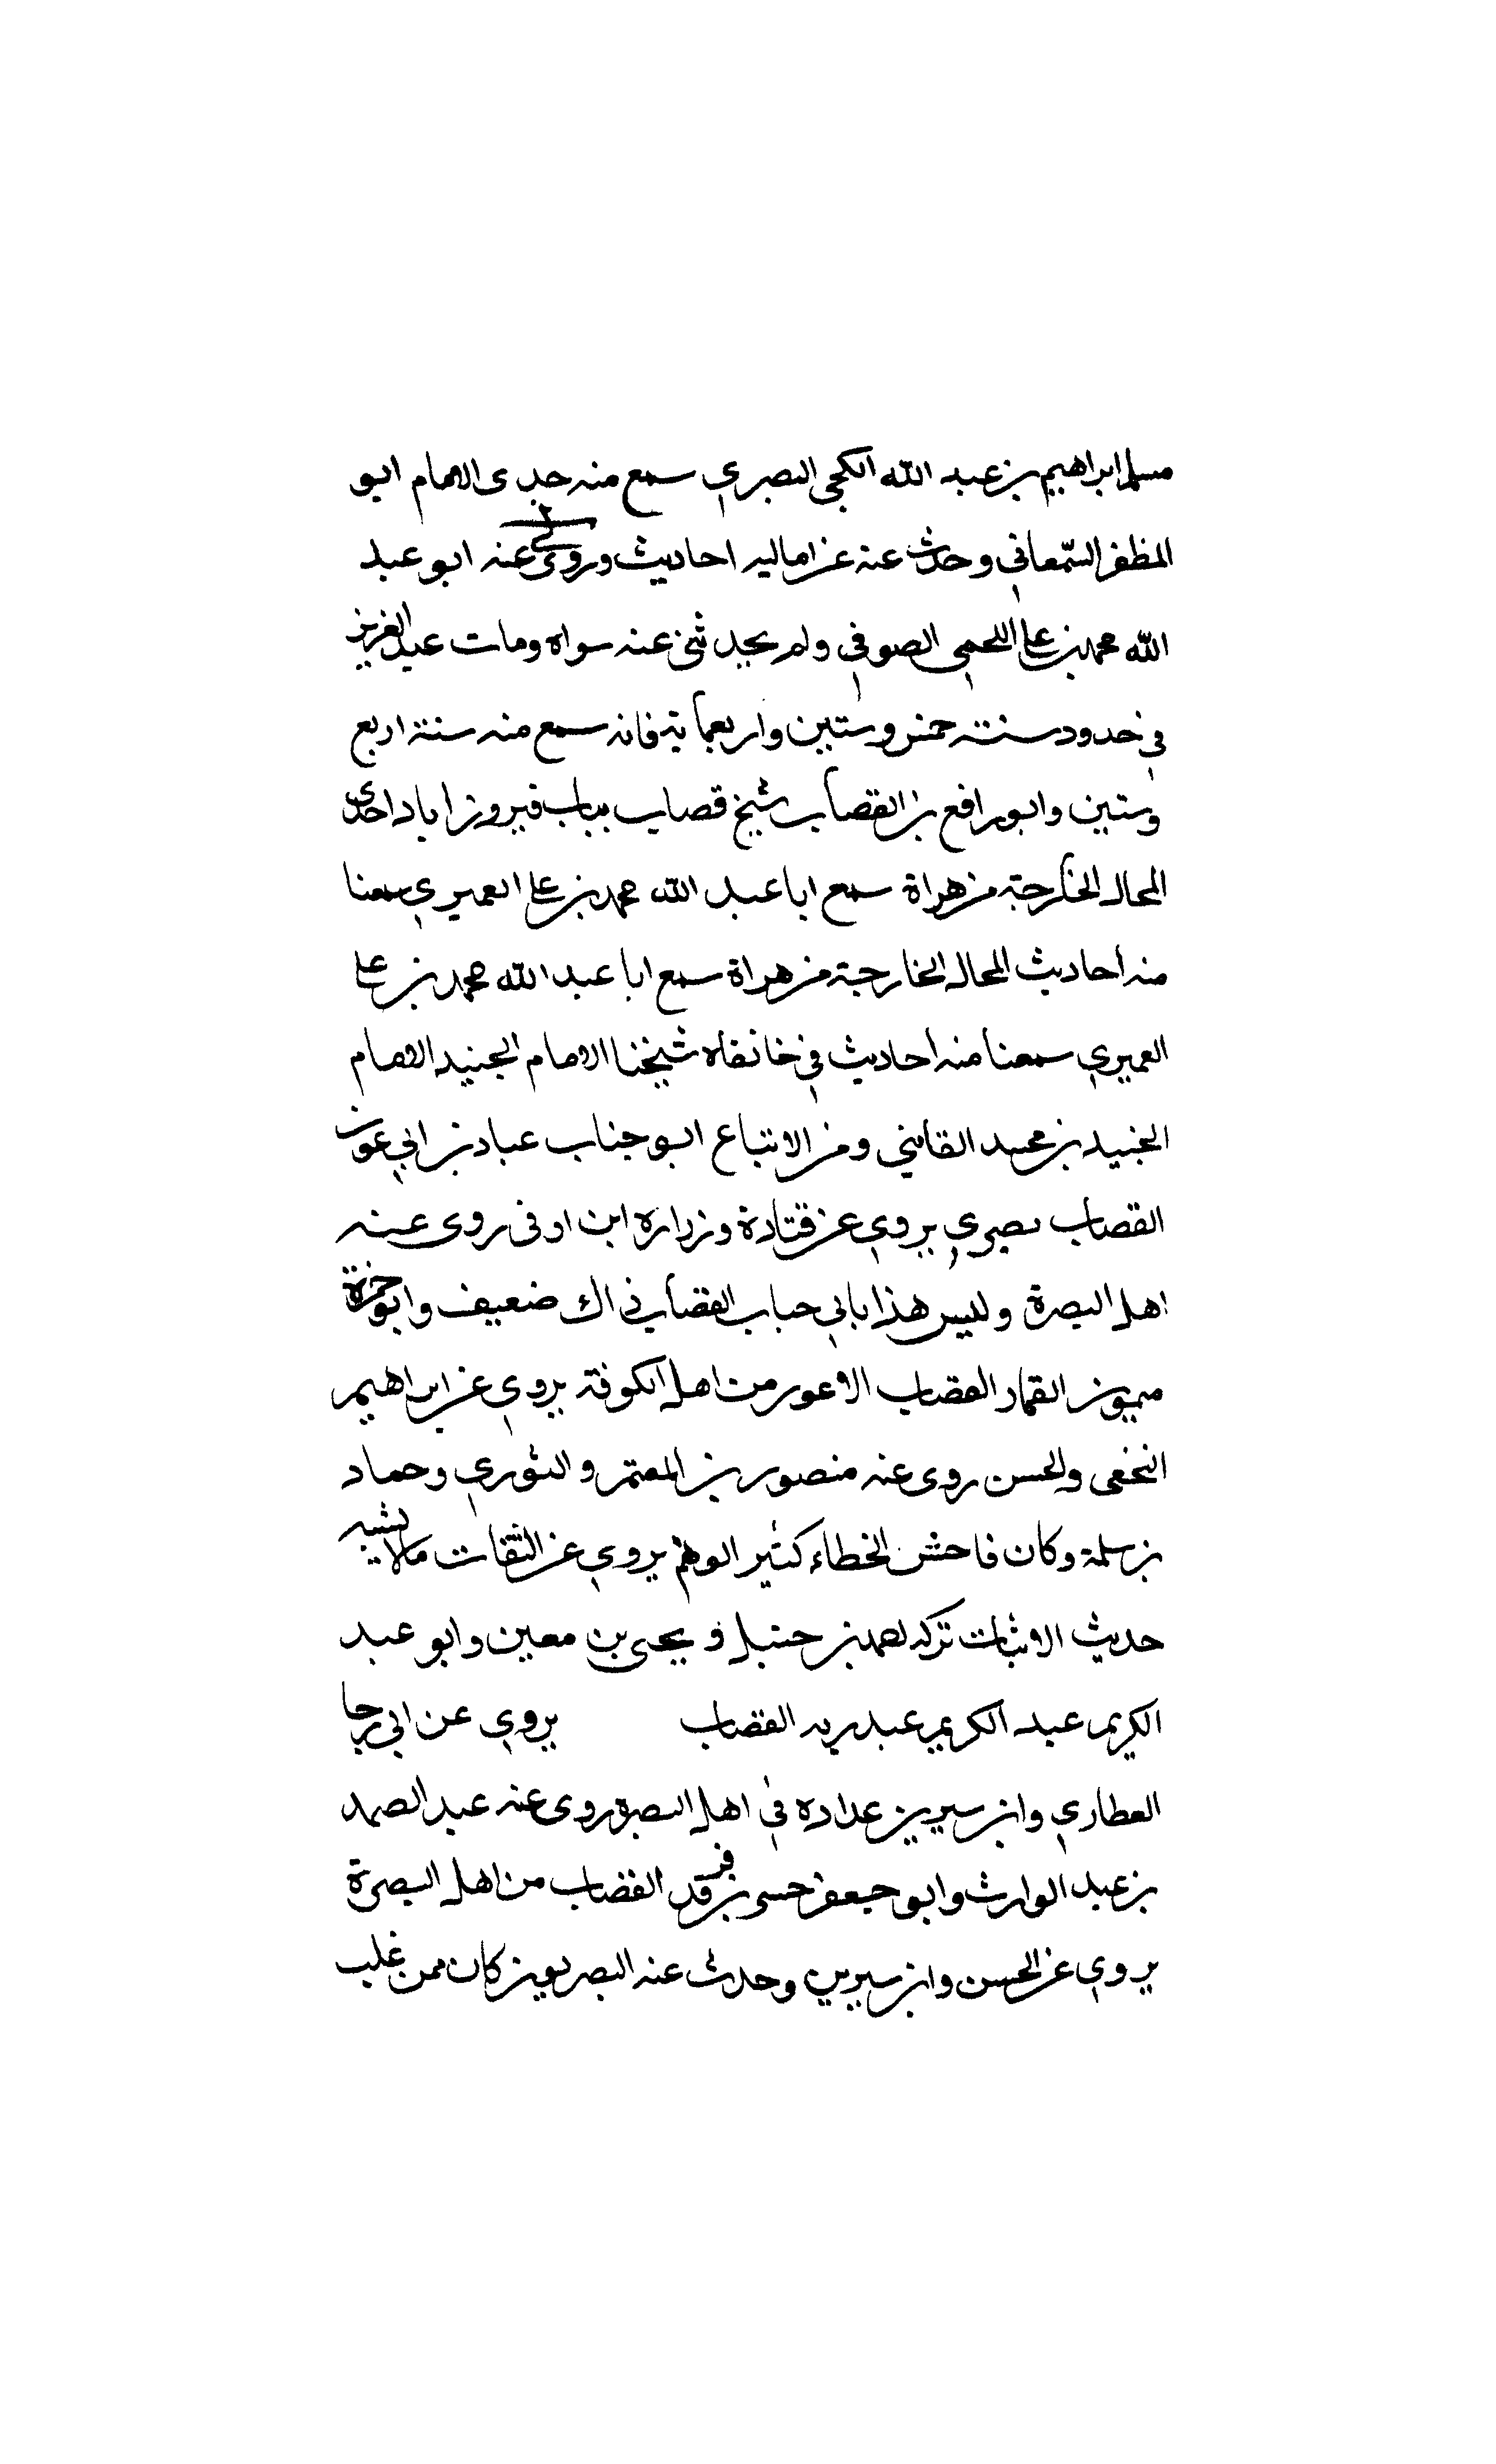 مسلم ابراهيم بن عبد الله الكجي البصري سمع منه جدى الامام ابو
المظفر السّمعاني وحدث عنه عن اماليه احاديث وروى لي عنه ابو عبد
الله محمد بن على اللحمي الصوفي ولم يحد ثنى عنه سواه ومات عبد العزيز
في حدود سنته خمس وستين واربعماية فانه سمع منه سنتة اربع
وستين وابو رافع بن القصاب شيخ قصاب بباب فيروزاباد احدى
المحال الخارجة من هراة سمع ابا عبد الله محمد بن على العميري سمعنا
منه احاديث المحال الخارجة من هراة سمع ابا عبد الله محمد بن على
العميري سمعنا منه احاديث في خانقاه شيخنا الامام الجنيد الامام
الجنيد بن محمد القايني ومن الاتباع ابو جناب عباد بن ابي عون
القصاب بصري يروي عن قتادة وزراره ابن اوفى روى عنه
اهل البصرة وليس هذا بابي حباب القصاب ذاك ضعيف وابو حمزة
ميمون القمار القصاب الاعور من اهل الكوفة يروي عن ابراهيم
النخعى والحسن روى عنه منصور بن المعتمر والثوري وحماد
بن سلمة وكان فاحش الخطاء كثير الوهم يروي عن الثقات مالا يشبه
حديث الاثبات تركه احمد بن حنبل و يحى بن معين وابو عبد
الكريم عبد الكريم عبد ربه القصاب يروي عن ابي رجا
العطاري وابن سيرين عداده في اهل البصرة روى عنه عبد الصمد
بن عبد الوارث وابو جعفر حسى بن فرقد القصاب من اهل البصرة
يروي عن الحسن وابن سيرين وحدث عنه البصريون كان ممن غلب